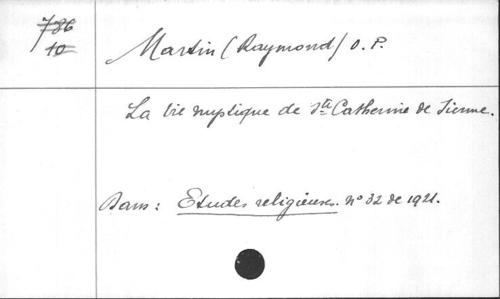 786
10
Martin (Raymond) O. P.
La vie mystique de Ste Catherine de Sienne.
Dans : Etudes religieuses. n° 32 de 1921.